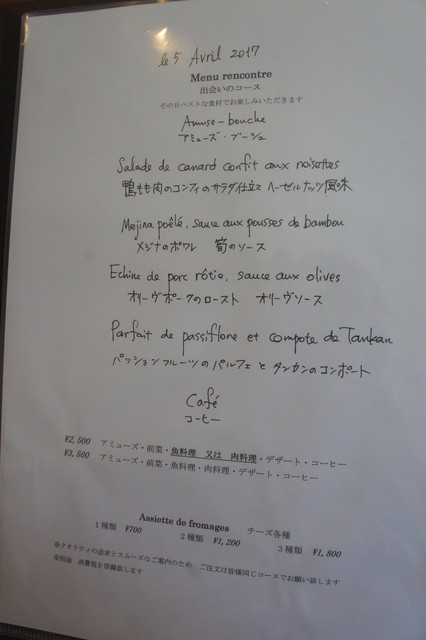 le 5 Avril 2017
Menu rencontre
出会いのコース
その日ベストな食材でお楽しみいただきます
Amuse-bouche
アミューズ・ブーシュ
Salade de canard confit aux noisettes
鴨もも肉のコンフィのサラダ仕立て ヘーゼルナッツ風味
Mejina poêlé, sauce aux pousses de bambou
メジナのポワレ 筍のソース
Echine de porc rôtie, sauce aux olives
オリーヴポークのロースト オリーヴソース
Parfait de passiflone et compote de Tankan
パッションフルーツのパルフェと タンカンのコンポート
Café
コーヒー
¥2,500 アミューズ・前菜・魚料理 又は 肉料理・デザート・コーヒー
¥3,500 アミューズ・前菜・魚料理・肉料理・デザート・コーヒー
Assiette de fromages チーズ各種
1種類 ¥700 2種類 ¥1,200 3種類 ¥1,800
※クオリティの追求とスムーズなご案内のため ご注文は皆様同じコースでお願い致します
※別途 消費税を頂戴致します